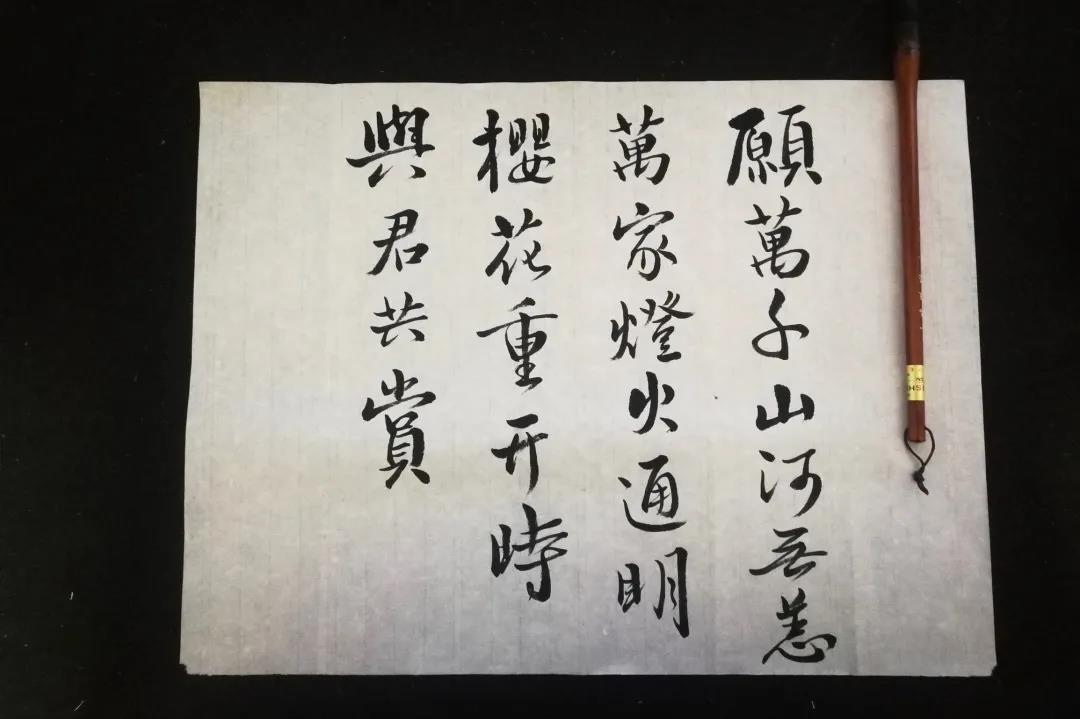 願萬千山河无恙
萬家燈火通明
櫻花重开時
與君共賞